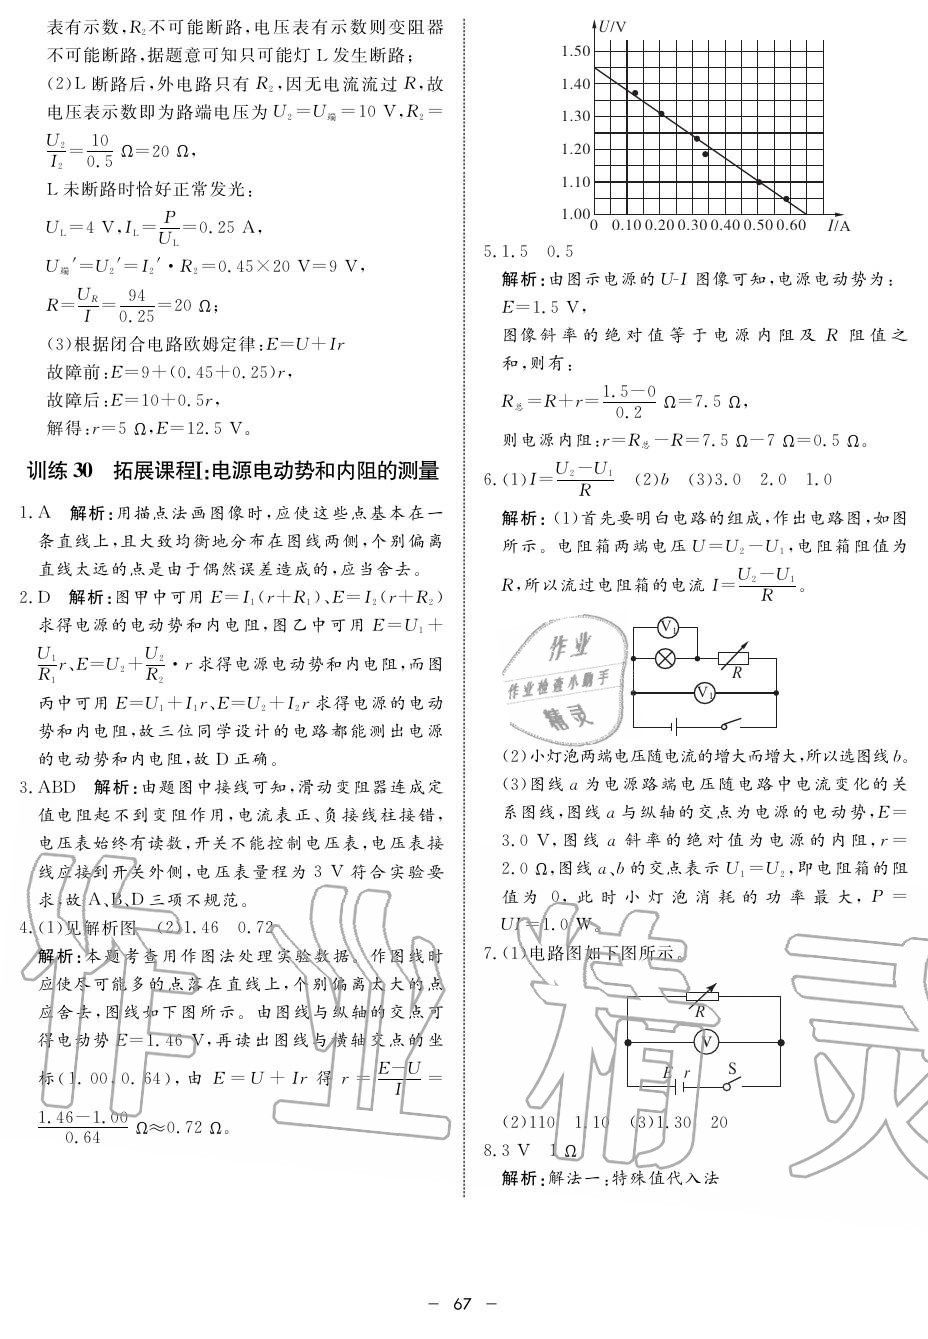 表有示数,R₂不可能断路,电压表有示数则变阻器
不可能断路,据题意可知只可能灯 L 发生断路;
(2)L 断路后,外电路只有 R₂,因无电流流过 R,故
电压表示数即为路端电压为 U₂=U端=10 V,R₂=
U₂/I₂=10/0.5 Ω=20 Ω,
L 未断路时恰好正常发光:
U_L=4 V,I_L=P/U_L=0.25 A,
U端′=U₂′=I₂′·R₂=0.45×20 V=9 V,
R=U_R/I=94/0.25=20 Ω;
(3)根据闭合电路欧姆定律:E=U+Ir
故障前:E=9+(0.45+0.25)r,
故障后:E=10+0.5r,
解得:r=5 Ω,E=12.5 V。
训练 30 拓展课程Ⅰ:电源电动势和内阻的测量
1. A 解析:用描点法画图像时,应使这些点基本在一
条直线上,且大致均衡地分布在图线两侧,个别偏离
直线太远的点是由于偶然误差造成的,应当舍去。
2. D 解析:图甲中可用 E=I₁(r+R₁)、E=I₂(r+R₂)
求得电源的电动势和内电阻,图乙中可用 E=U₁+
U₁/R₁ r、E=U₂+U₂/R₂·r 求得电源电动势和内电阻,而图
丙中可用 E=U₁+I₁r、E=U₂+I₂r 求得电源的电动
势和内电阻,故三位同学设计的电路都能测出电源
的电动势和内电阻,故 D 正确。
3. ABD 解析:由题图中接线可知,滑动变阻器连成定
值电阻起不到变阻作用,电流表正、负接线柱接错,
电压表始终有读数,开关不能控制电压表,电压表接
线应接到开关外侧,电压表量程为 3 V 符合实验要
求,故 A、B、D 三项不规范。
4. (1)见解析图 (2)1.46 0.72
解析:本题考查用作图法处理实验数据。作图线时
应使尽可能多的点落在直线上,个别偏离太大的点
应舍去,图线如下图所示。由图线与纵轴的交点可
得电动势 E=1.46 V,再读出图线与横轴交点的坐
标(1.00,0.64),由 E=U+Ir 得 r=E-U/I=
1.46-1.00/0.64 Ω≈0.72 Ω。
U/V
1.50
1.40
1.30
1.20
1.10
1.00
0 0.10 0.20 0.30 0.40 0.50 0.60 I/A
5. 1.5 0.5
解析:由图示电源的 U-I 图像可知,电源电动势为:
E=1.5 V,
图像斜率的绝对值等于电源内阻及 R 阻值之
和,则有:
R总=R+r=1.5-0/0.2 Ω=7.5 Ω,
则电源内阻:r=R总-R=7.5 Ω-7 Ω=0.5 Ω。
6. (1)I=U₂-U₁/R (2)b (3)3.0 2.0 1.0
解析:(1)首先要明白电路的组成,作出电路图,如图
所示。电阻箱两端电压 U=U₂-U₁,电阻箱阻值为
R,所以流过电阻箱的电流 I=U₂-U₁/R。
V₁
R
V₁
作业
作业检查小助手
精灵
(2)小灯泡两端电压随电流的增大而增大,所以选图线 b。
(3)图线 a 为电源路端电压随电路中电流变化的关
系图线,图线 a 与纵轴的交点为电源的电动势,E=
3.0 V,图线 a 斜率的绝对值为电源的内阻,r=
2.0 Ω,图线 a、b 的交点表示 U₁=U₂,即电阻箱的阻
值为 0,此时小灯泡消耗的功率最大,P=
UI=1.0 W。
7. (1)电路图如下图所示。
R
V
E r S
(2)110 1.10 (3)1.30 20
8. 3 V 1 Ω
解析:解法一:特殊值代入法
作业精灵
— 67 —